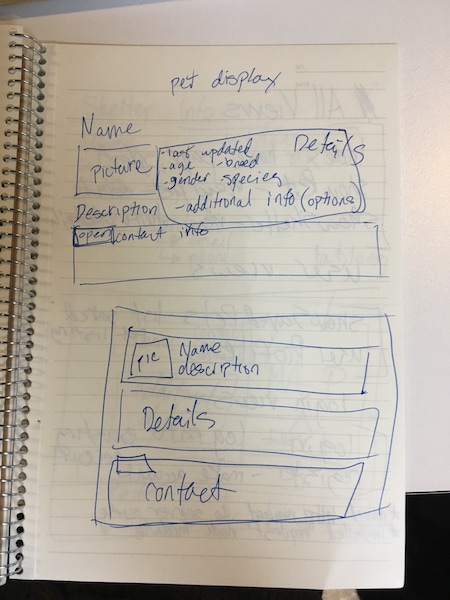 pet display
Name
Picture
Details
- last updated
- age - breed
- gender species
- additional info (optional)
Description
open contact info
pic
Name
description
Details
contact